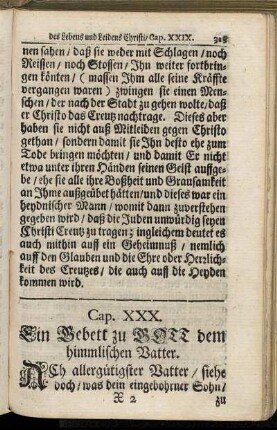 des Lebens und Leidens Christi/ Cap. XXIX.
nen sahen/ daß sie weder mit Schlagen/ noch
Reissen/ noch Stossen/ Jhn weiter fortbrin-
gen könten/ (massen Jhm alle seine Kräffte
vergangen waren) zwingen sie einen Men-
schen/ der nach der Stadt zu gehen wolte/ daß
er Christo das Creutz nachtrage. Dieses aber
haben sie nicht auß Mitleiden gegen Christo
gethan/ sondern damit sie Jhn desto ehe zum
Tode bringen möchten/ und damit Er nicht
etwa unter ihren Händen seinen Geist auffge-
be/ ehe sie alle ihre Boßheit und Grausamkeit
an Jhme außgeübet hätten/ und dieses war ein
heydnischer Mann/ womit dann zuverstehen
gegeben wird/ daß die Juden unwürdig seyen
Christi Creutz zu tragen; ingleichem deutet es
auch mithin auff ein Geheimnuß/ nemlich
auff den Glauben und die Ehre oder Herrlich-
keit des Creutzes/ die auch auff die Heyden
kommen wird.
Cap. XXX.
Ein Gebett zu GOTT dem
himmlischen Vatter.
ACh allergütigster Vatter/ siehe
doch/ was dein eingebohrner Sohn/
X 2 zu